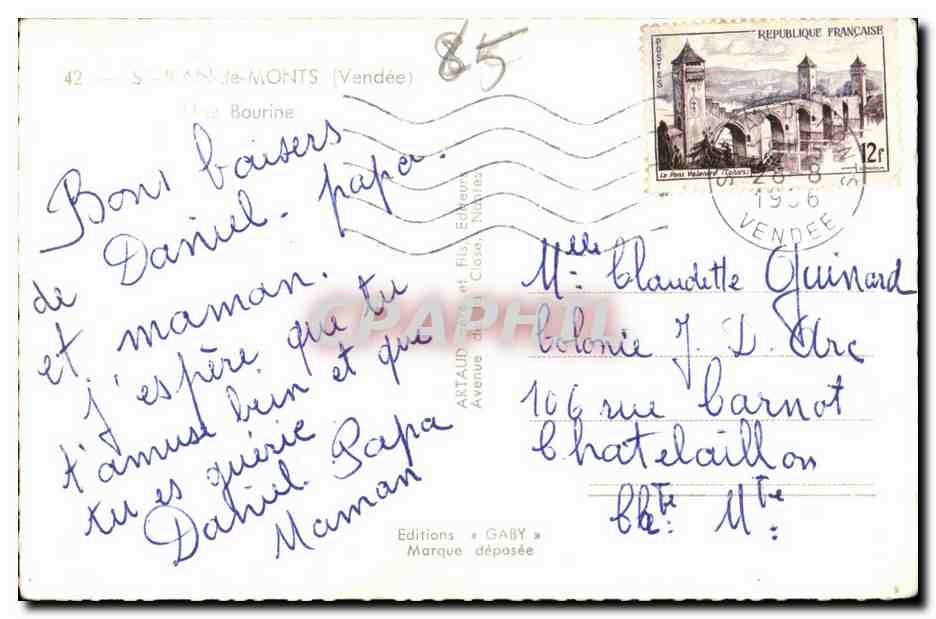 42
ST-JEAN-de-MONTS (Vendée)
Une Bourine
85
Bons baisers
de Daniel. papa.
et maman.
j'espère que tu
t'amuse bein et que
tu es guérie
Daniel Papa
Maman
ARTAUD Père et Fils, Editeurs
Avenue de la Close, Nantes
Editions « GABY »
Marque déposée
REPUBLIQUE FRANÇAISE
POSTES
Le Pont Valentré (Cahors)
12F
1956
VENDEE
Mlle Claudette Guinard
Colonie J. D. Arc
106 rue Carnot
Chatelaillon
Chte Mte
CPAPHIL